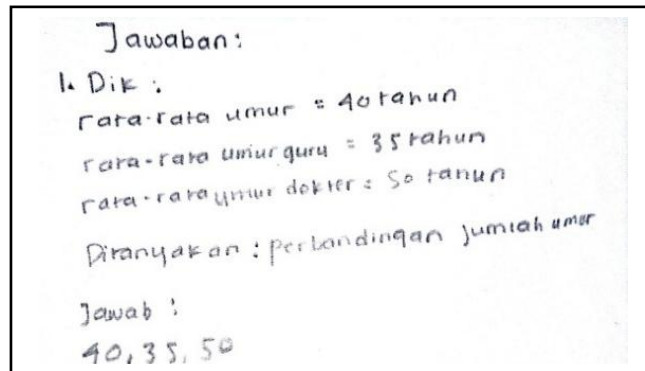 Jawaban:
1. Dik :
rata-rata umur = 40 tahun
rata-rata umur guru = 35 tahun
rata-rata umur dokter = 50 tahun
Ditanyakan : perbandingan jumlah umur
Jawab :
40, 35, 50